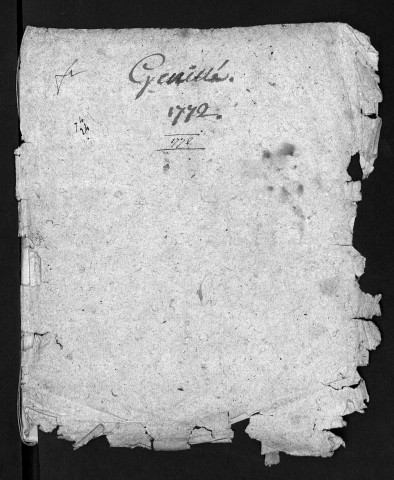 Genillé.
1772.
1772